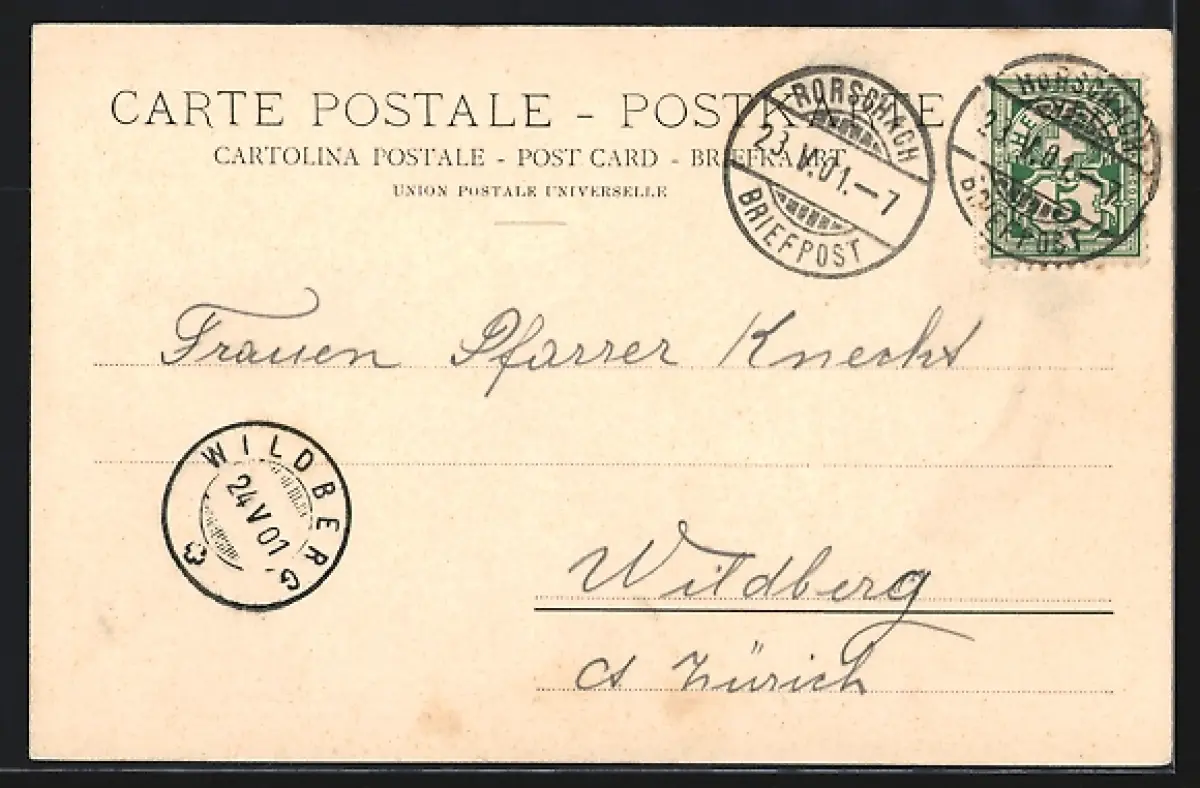 CARTE POSTALE - POSTKARTE
CARTOLINA POSTALE - POST CARD - BRIEFKAART
UNION POSTALE UNIVERSELLE
RORSCHACH
23.V.01.-7
BRIEFPOST
RORSCHACH
23.V.01.-7
BRIEFPOST
5
Frauen Pfarrer Knecht
WILDBERG.
24 V 01
Wildberg
Ct Zürich